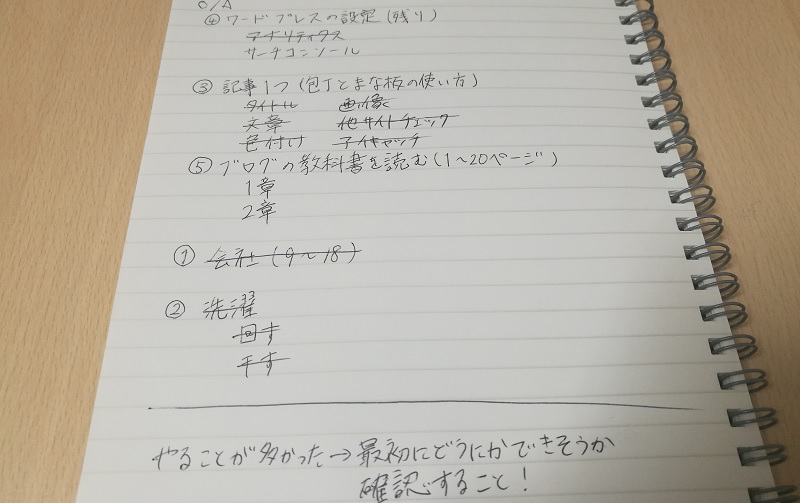 ④ ワードプレスの設定(残り)
アナリティクス
サーチコンソール
③ 記事1つ(包丁とまな板の使い方)
タイトル 画像
文章 他サイトチェック
色付け アイキャッチ
⑤ ブログの教科書を読む(1~20ページ)
1章
2章
① 会社(9~18)
② 洗濯
回す
干す
やることが多かった→最初にどうにかできそうか
確認すること!